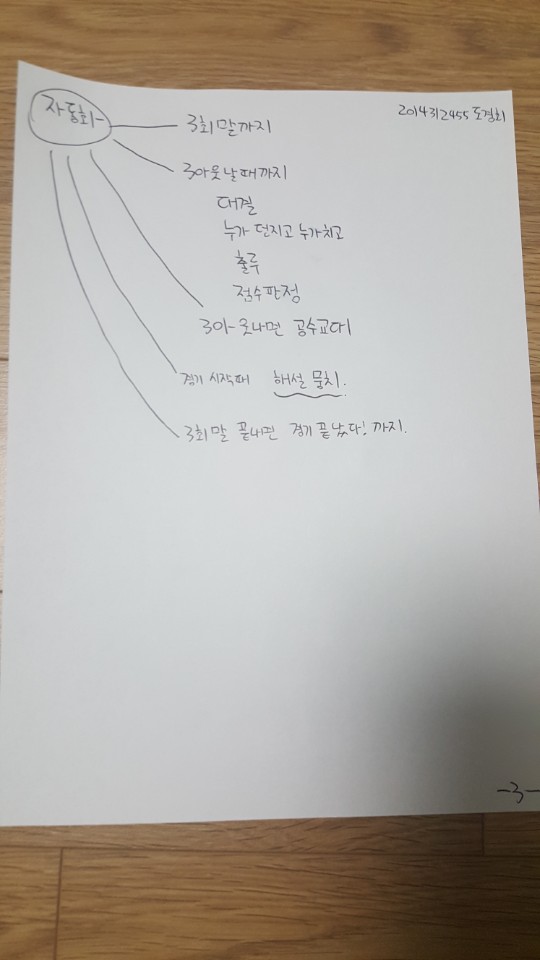 2014312455 도경회
자동화
3회말까지
3아웃날때까지
대결
누가 던지고 누가치고
출루
점수판정
3아웃나면 공수교대
경기 시작때 해설 뭉치.
3회말 끝나면 경기 끝났다! 까지.
-3-